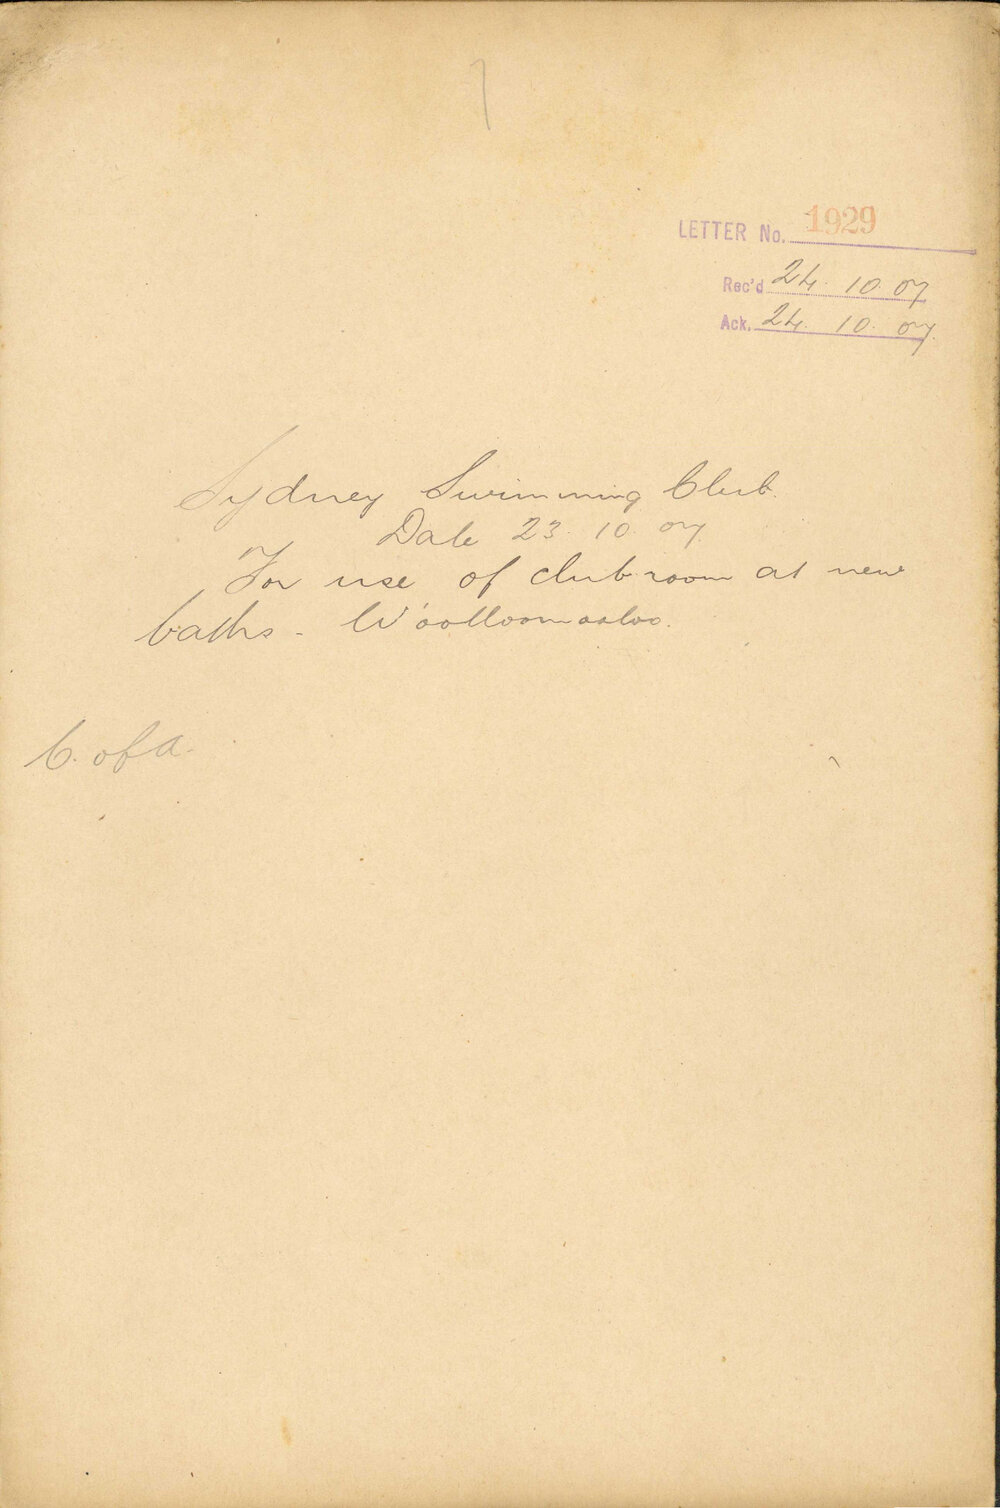 LETTER No. 1929
Rec'd 24. 10. 07
Ack. 24. 10. 07.
Sydney Swimming Club.
Date 23. 10. 07.
For use of club room at new
baths - Woolloomooloo.
C. of A.